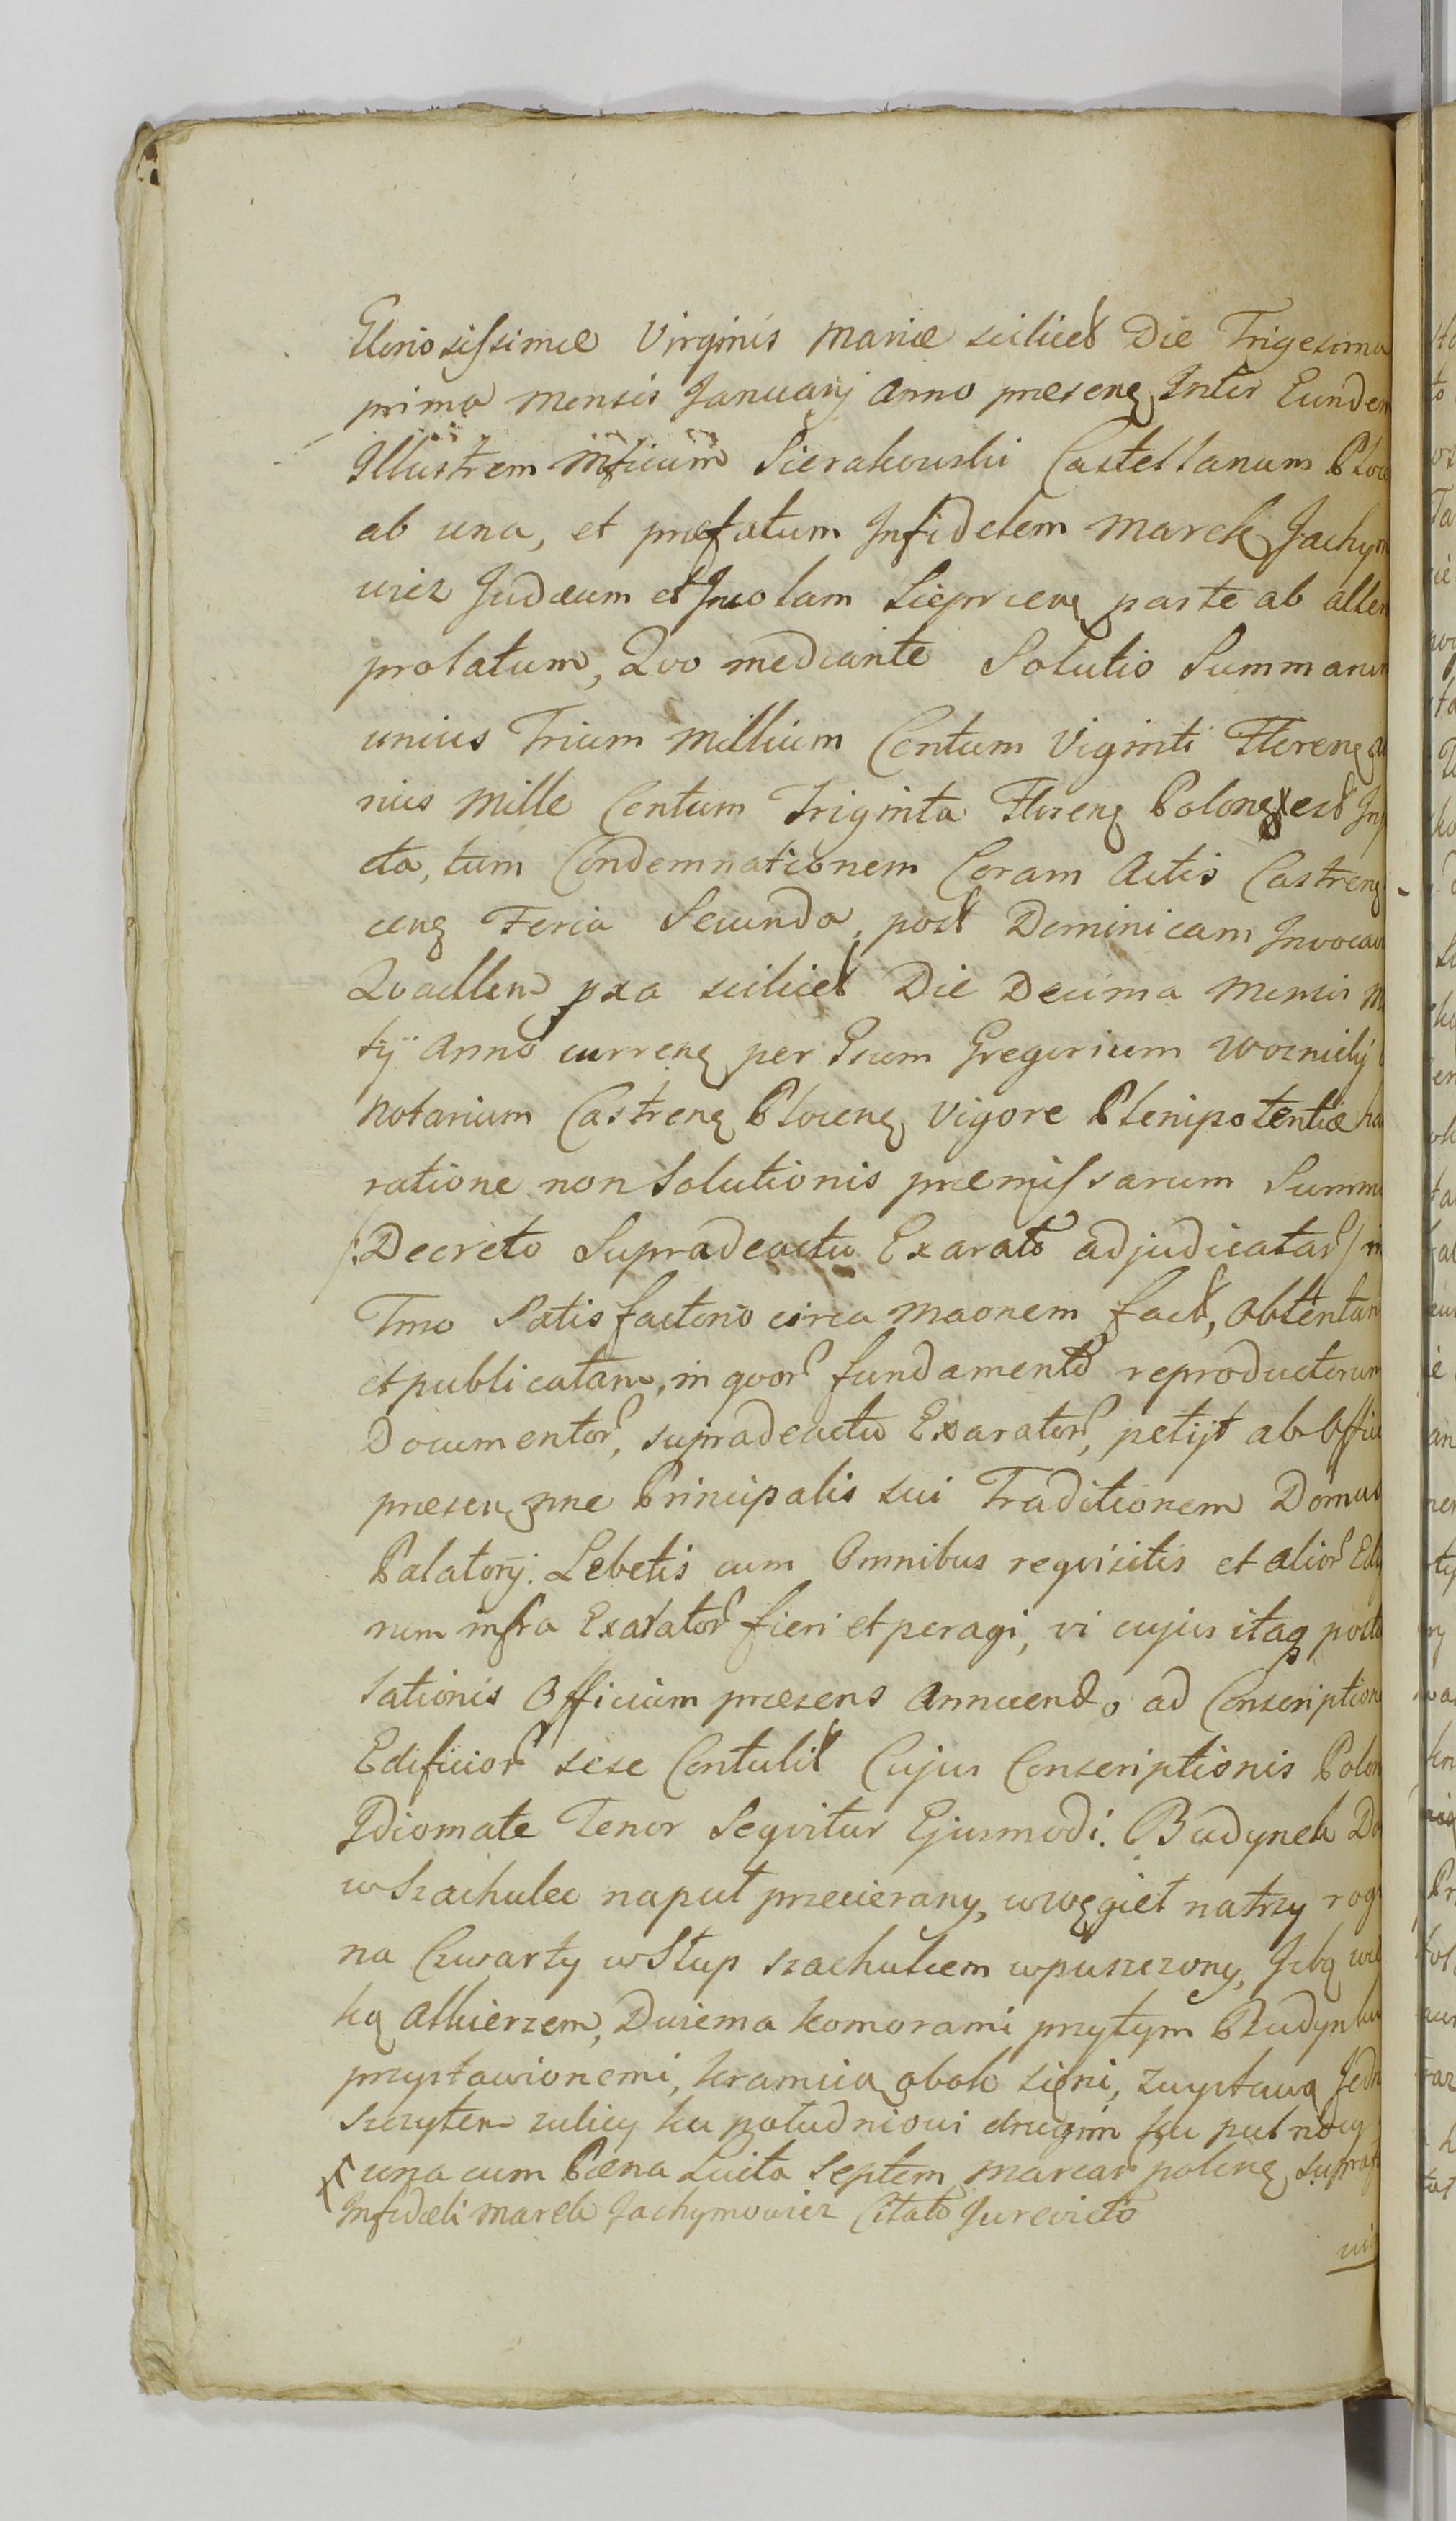 Gloriosissimæ Virginis Mariæ scilicet Die Trigesima
prima Mensis Januarij Anno præsenę Inter Eundem
Illustrem Mficum Sierakowski Castellanum Ploc
ab una, et præfatum Infidelem Marek Jachym
wicz Judæum et Incolam Sieprcenę parte ab alter
prolatum, Qvo mediante Solutio Summarum
unius Trium Millium Centum Viginti Florenę
rius Mille Centum Triginta Florenę Polonę est Inj
cta, tum Condemnationem Coram Actis Castrenę
cenę Feria Secunda, post Dominicam Invocavi
Qvadlem pxa scilicet Die Decima Mensis M
tij Anno currenę per Gsum Gregorium Woznicki
Notarium Castrenę Plocenę Vigore Plenipotentiæ
ratione non Solutionis præmissarum Summ
/:Decreto Supradeactu Exarato adjudicatar/ in
Tmo Satisfactorio circa Maonem fact, obtentam
et publicatam, in qvor fundamento reproductorum
Documentor, supradeactu Exarator, petijt ab Offic
præsen, pne Principalis sui Traditionem Domus
Palatorij. Lebetis cum Omnibus reqvisitis et alior Edi
rum infra Exarator fieri et peragi, vi cujus itaq postu
lationis Officium præsens Annuendo ad Conscription
Edificior sese Contulit Cujus Conscriptionis Polon
Idiomate Tenor Seqvitur Ejusmodi. Budynek Do
w Szachulec naput przecierany, w węgieł na trzy rog
na Czwarty w Słup szachulcem wpuszczony, Izbą wiel
ką Alkierzem, Dwiema komorami przytym Budynku
przystawionemi, kramnicą obok sieni, zwystawą Jedn
Szczytem zulicy ku południowi drugim ku pułnocy
x una cum Pæna Lucta Septem Marcar polonę suprat
Infideli Marek Jachymowicz Citato Jurevicto